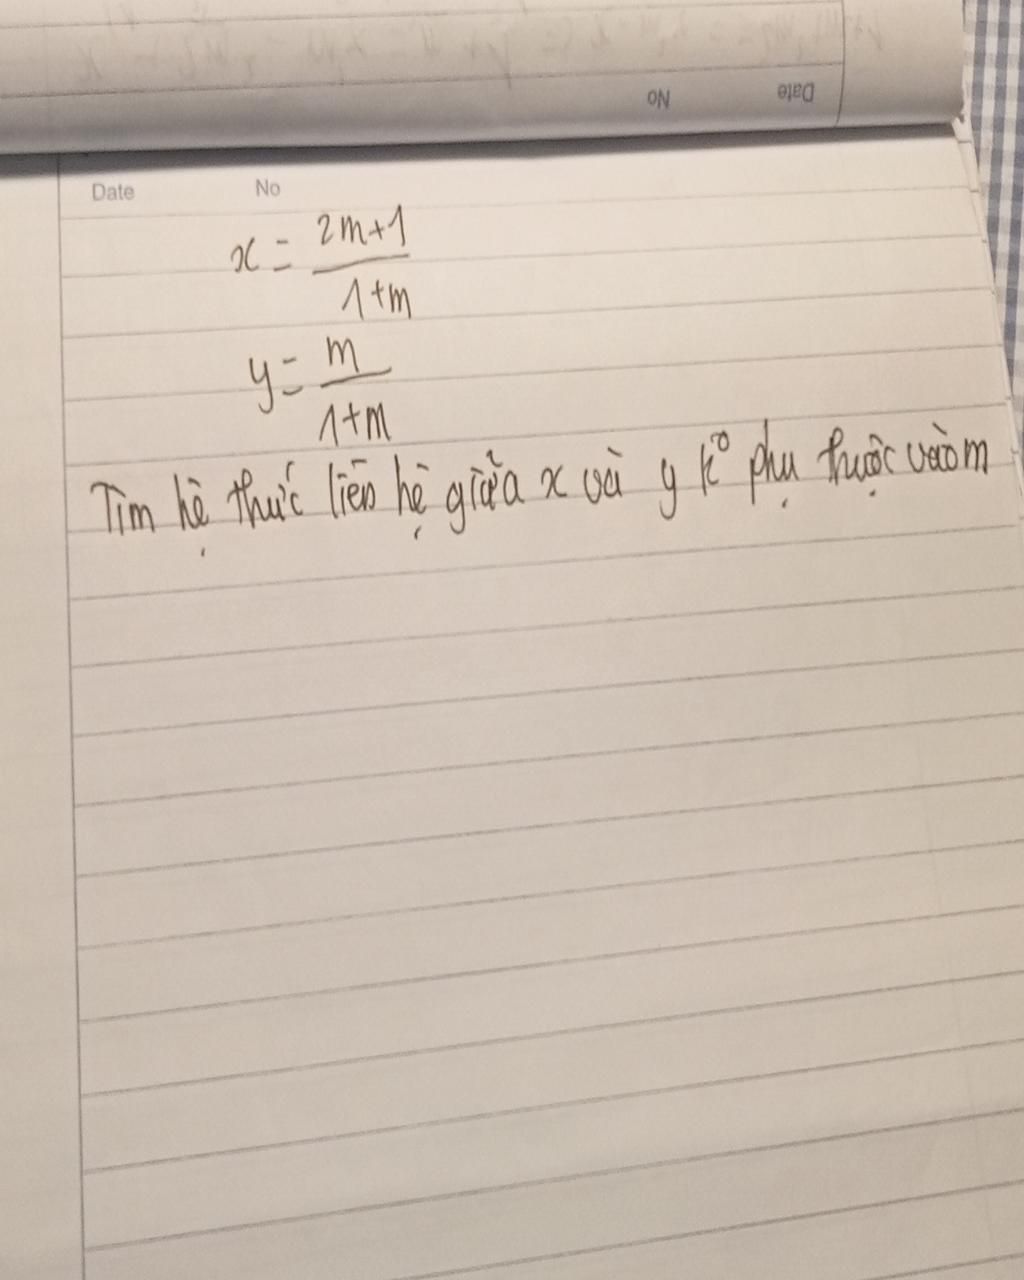 Date No
Date No
x = 2m+1 / 1+m
y = m / 1+m
Tìm hệ thức liên hệ giữa x và y kº phụ thuộc vào m